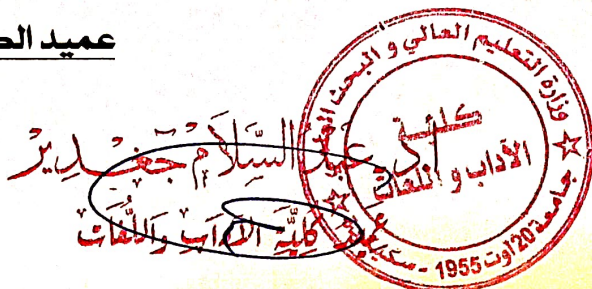 عميد
وزارة التعليم العالي و البحث
كليـة
الآداب و اللغات
جامعة 20 أوت 1955 -
أ.د. عبد السَّلاَم جغـدِيرْ
كُلِّيَّة الآدَابِ وَاللُّغَات